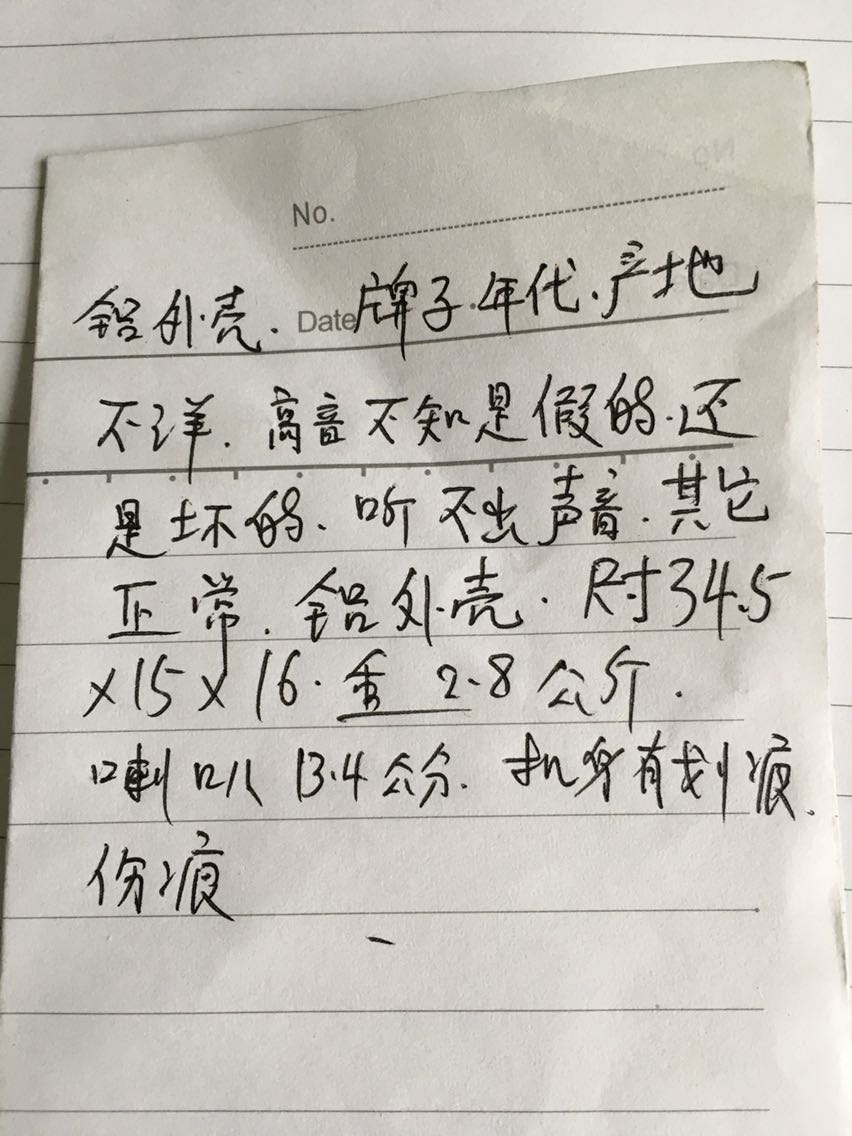 No.
Date
铝外壳.牌子.年代.产地
不详.高音不知是假的.还
是坏的.听不出声音.其它
正常.铝外壳.尺寸34.5
x15x16.重2.8公斤.
喇叭13.4公分.机身有划痕.
伤痕